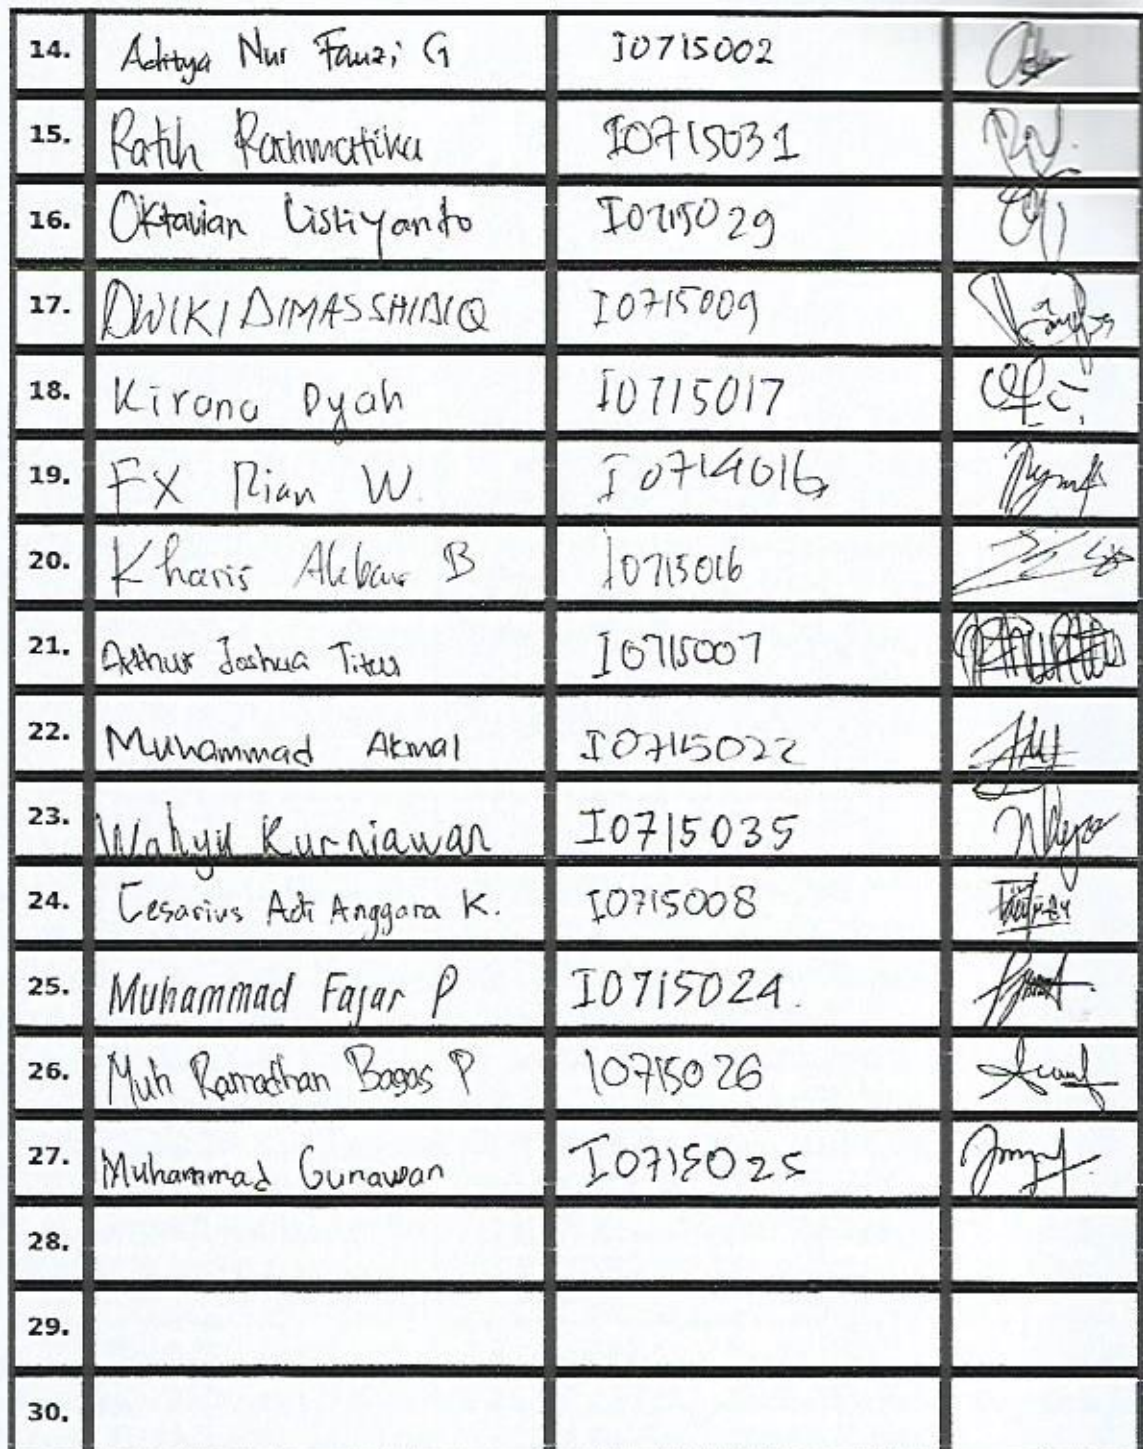 14. Aditya Nur Fauzi G I0715002
15. Ratih Rachmatika I0715031
16. Oktavian Listiyanto I0715029
17. DWIKI DIMASSHIDIQ I0715009
18. Kirana Dyah I0715017
19. FX Rian W. I0714016
20. Kharis Akbar B I0715016
21. Arthur Joshua Titus I0715007
22. Muhammad Akmal I0715022
23. Wahyu Kurniawan I0715035
24. Cesarius Adi Anggara K. I0715008
25. Muhammad Fajar P I0715024.
26. Muh Ramadhan Bagas P I0715026
27. Muhammad Gunawan I0715025
28.
29.
30.